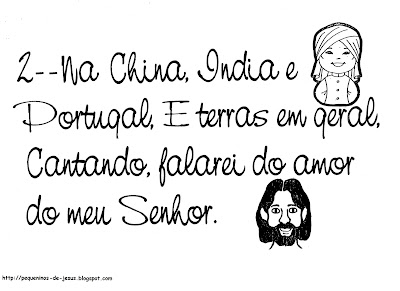 2--Na China, India e
Portugal, E terras em geral,
Cantando, falarei do amor
do meu Senhor.
http://pequeninos-de-jesus.blogspot.com